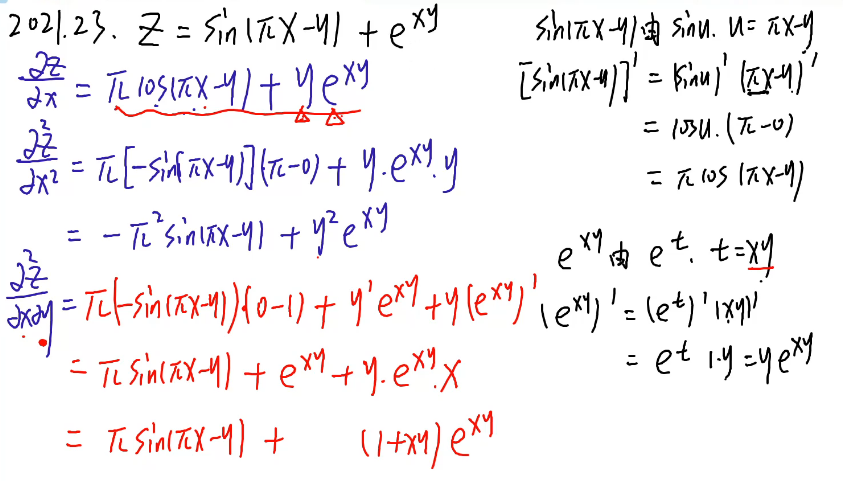 2021.23. Z = sin(πx-y) + e^{xy}
∂z/∂x = π cos(πx-y) + y e^{xy}
∂²z/∂x² = π[-sin(πx-y)](π-0) + y·e^{xy}·y
= -π² sin(πx-y) + y² e^{xy}
∂²z/∂x∂y = π(-sin(πx-y))·(0-1) + y' e^{xy} + y(e^{xy})'
= π sin(πx-y) + e^{xy} + y·e^{xy}·x
= π sin(πx-y) + (1+xy) e^{xy}
sin(πx-y) 由 sinu. u = πx-y
[sin(πx-y)]' = (sinu)' (πx-y)'
= cosu·(π-0)
= π cos(πx-y)
e^{xy} 由 e^t. t = xy
(e^{xy})' = (e^t)' (xy)'
= e^t 1·y = y e^{xy}